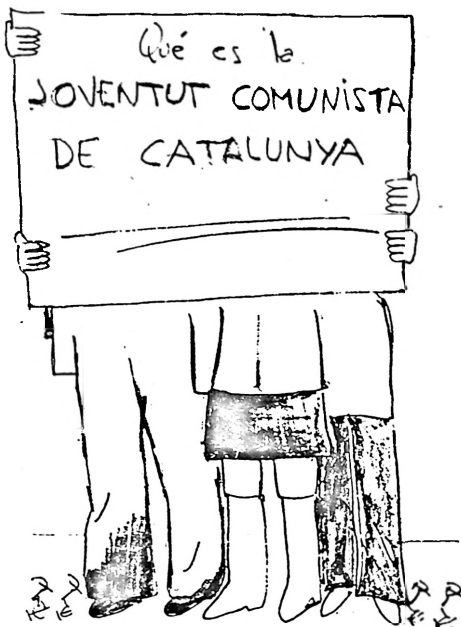 Qué es la
JOVENTUT COMUNISTA
DE CATALUNYA